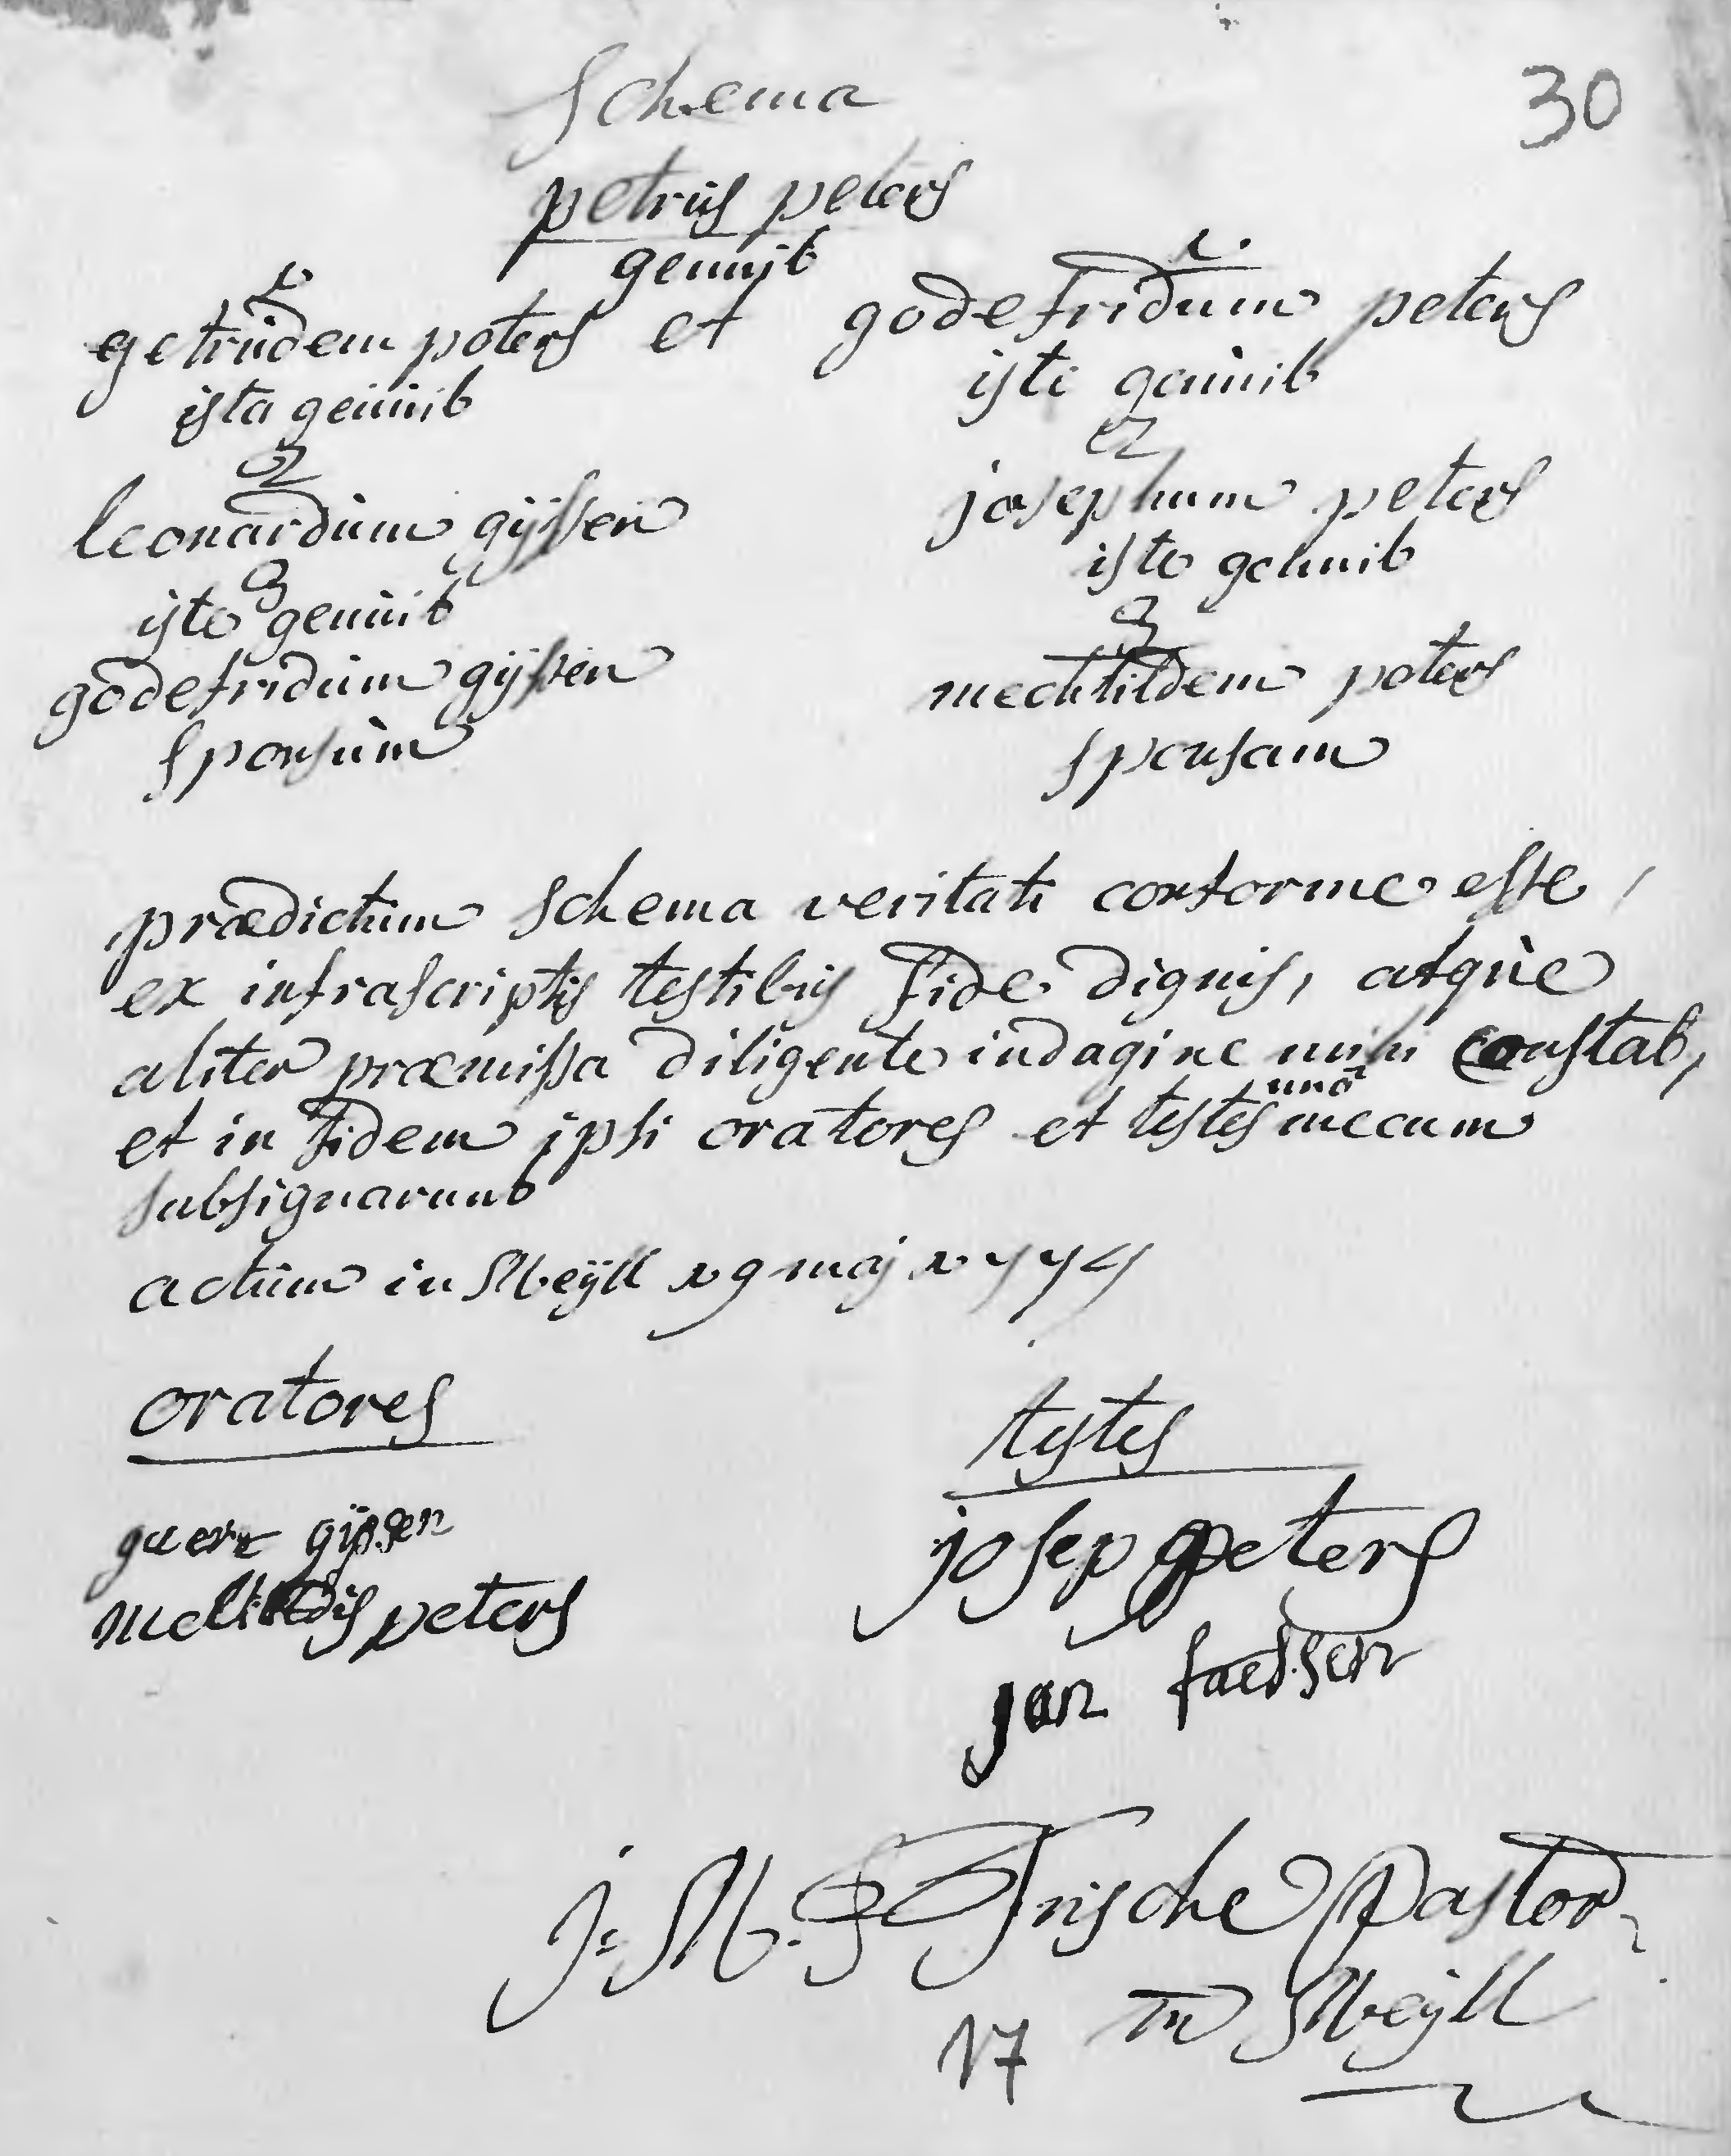 Schema
30
petrus peters
genuit
1. 1.
getrudem peters et godefridum peters
ista genuit iste genuit
2 2
leonardum gijssen josephum peters
iste genuit iste genuit
3 3
godefridum gijssen mechtildem peters
sponsum sponsam
prædictum schema veritati conforme esse,
ex infrascriptis testibus fide dignis, atque
aliter præmissa diligente indagine mihi constat,
et in fidem ipsi oratores et testes unà mecum
subsignarunt
actum in Meÿll 19 maj 1774
oratores testes
gijssen josep peters
peters jan faessen
j: M. Frische Pastor
in Meÿll
17